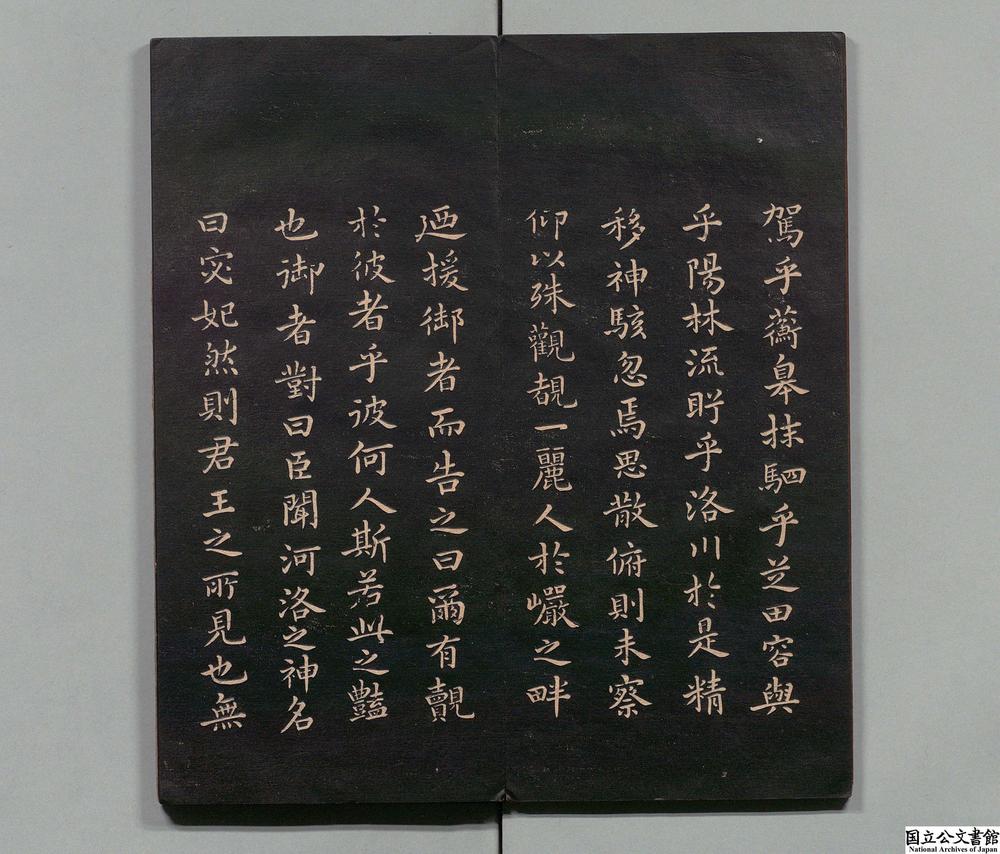 駕乎蘅皋抹駟乎芝田容與
乎陽林流眄乎洛川於是精
移神駭忽焉思散俯則未察
仰以殊觀覩一麗人於巖之畔
迺援御者而告之曰爾有覿
於彼者乎彼何人斯若此之豔
也御者對曰臣聞河洛之神名
曰宓妃然則君王之所見也無
国立公文書館
National Archives of Japan